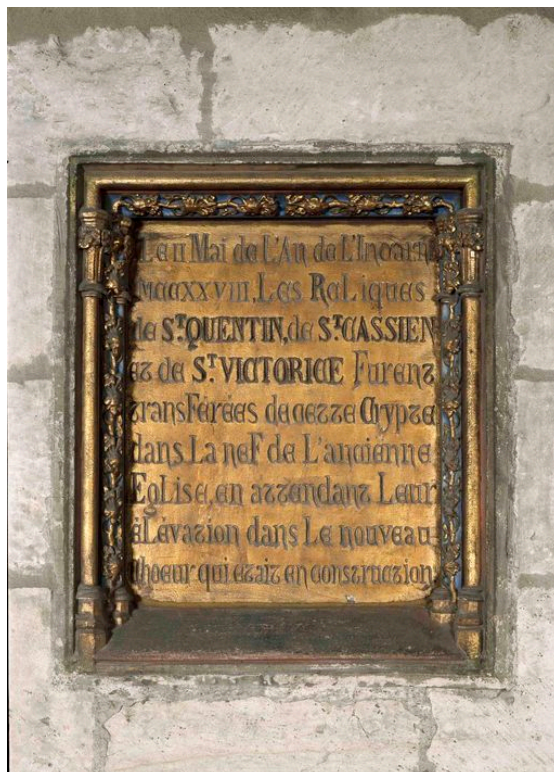 Le II Mai de L'An de L'Incarn
MCCXXVIII, Les ReLiques
de ST QUENTIN, de ST CASSIEN
et de ST VICTORICE Furent
transFérées de cette Crypte
dans La neF de L'ancienne
EgLise, en attendant Leur
éLévation dans Le nouveau
Choeur qui etait en construction